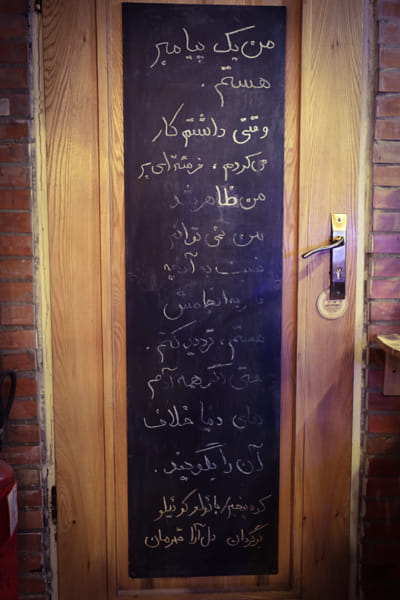 من یک پیامبر
هستم .
وقتی داشتم کار
می‌کردم ، فرشته‌ای بر
من ظاهر شد
من نمی توانم
نسبت به آنچه
مأمور به انجامش
هستم ، تردید کنم .
حتی اگر همه آدم
های دنیا خلاف
آن را بگویند .
کوه پنجم/پائولو کوئیلو
برگردان دل‌آرا قهرمان